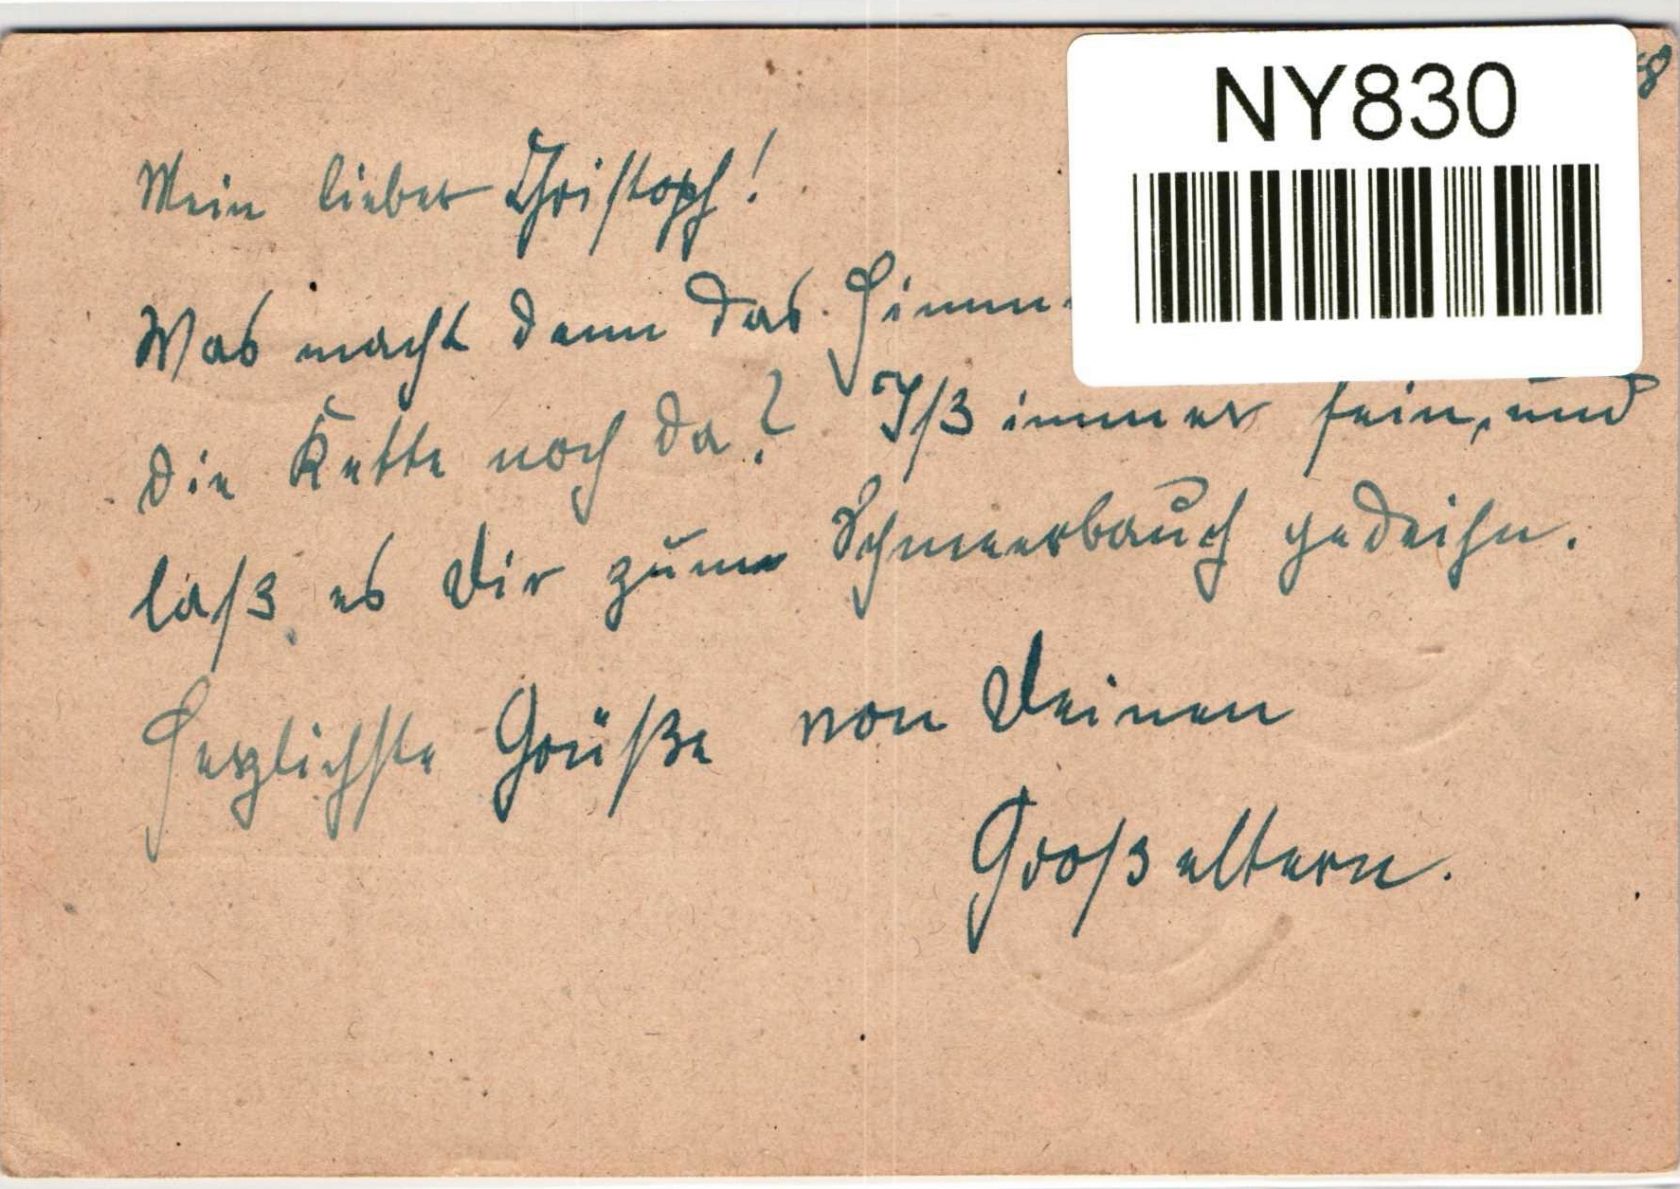 NY830
8
Mein lieber Christoph!
Was macht denn das
die Kette noch da? Iß immer fein, und
laß es Dir zum Schmeerbauch gedeihn.
Herzlichste Grüße von Deinen
Großeltern.